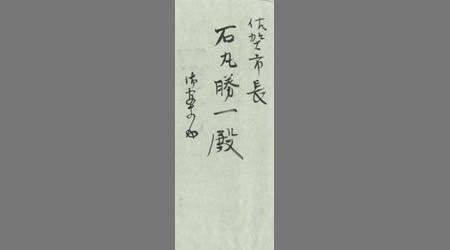 佐野市長
石丸勝一殿